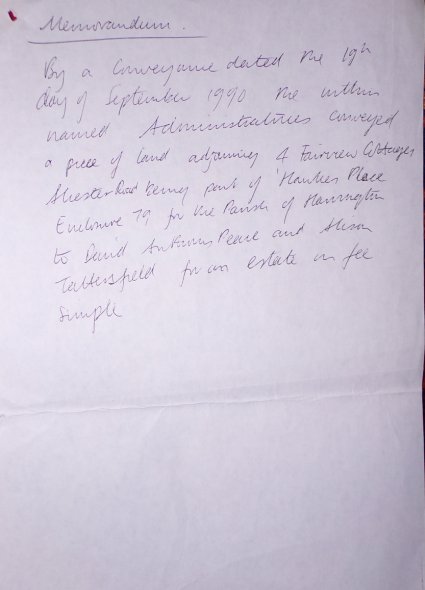 Memorandum.
By a Conveyance dated the 19th
day of September 1990 the within
named Administratrices conveyed
a piece of land adjoining 4 Fairview Cottages
Road being part of 'Hawkes Place
Enclosure 79 for the Parish of Hannington
to David Anthony Pearce and Alison
Tattersfield for an estate in fee
simple